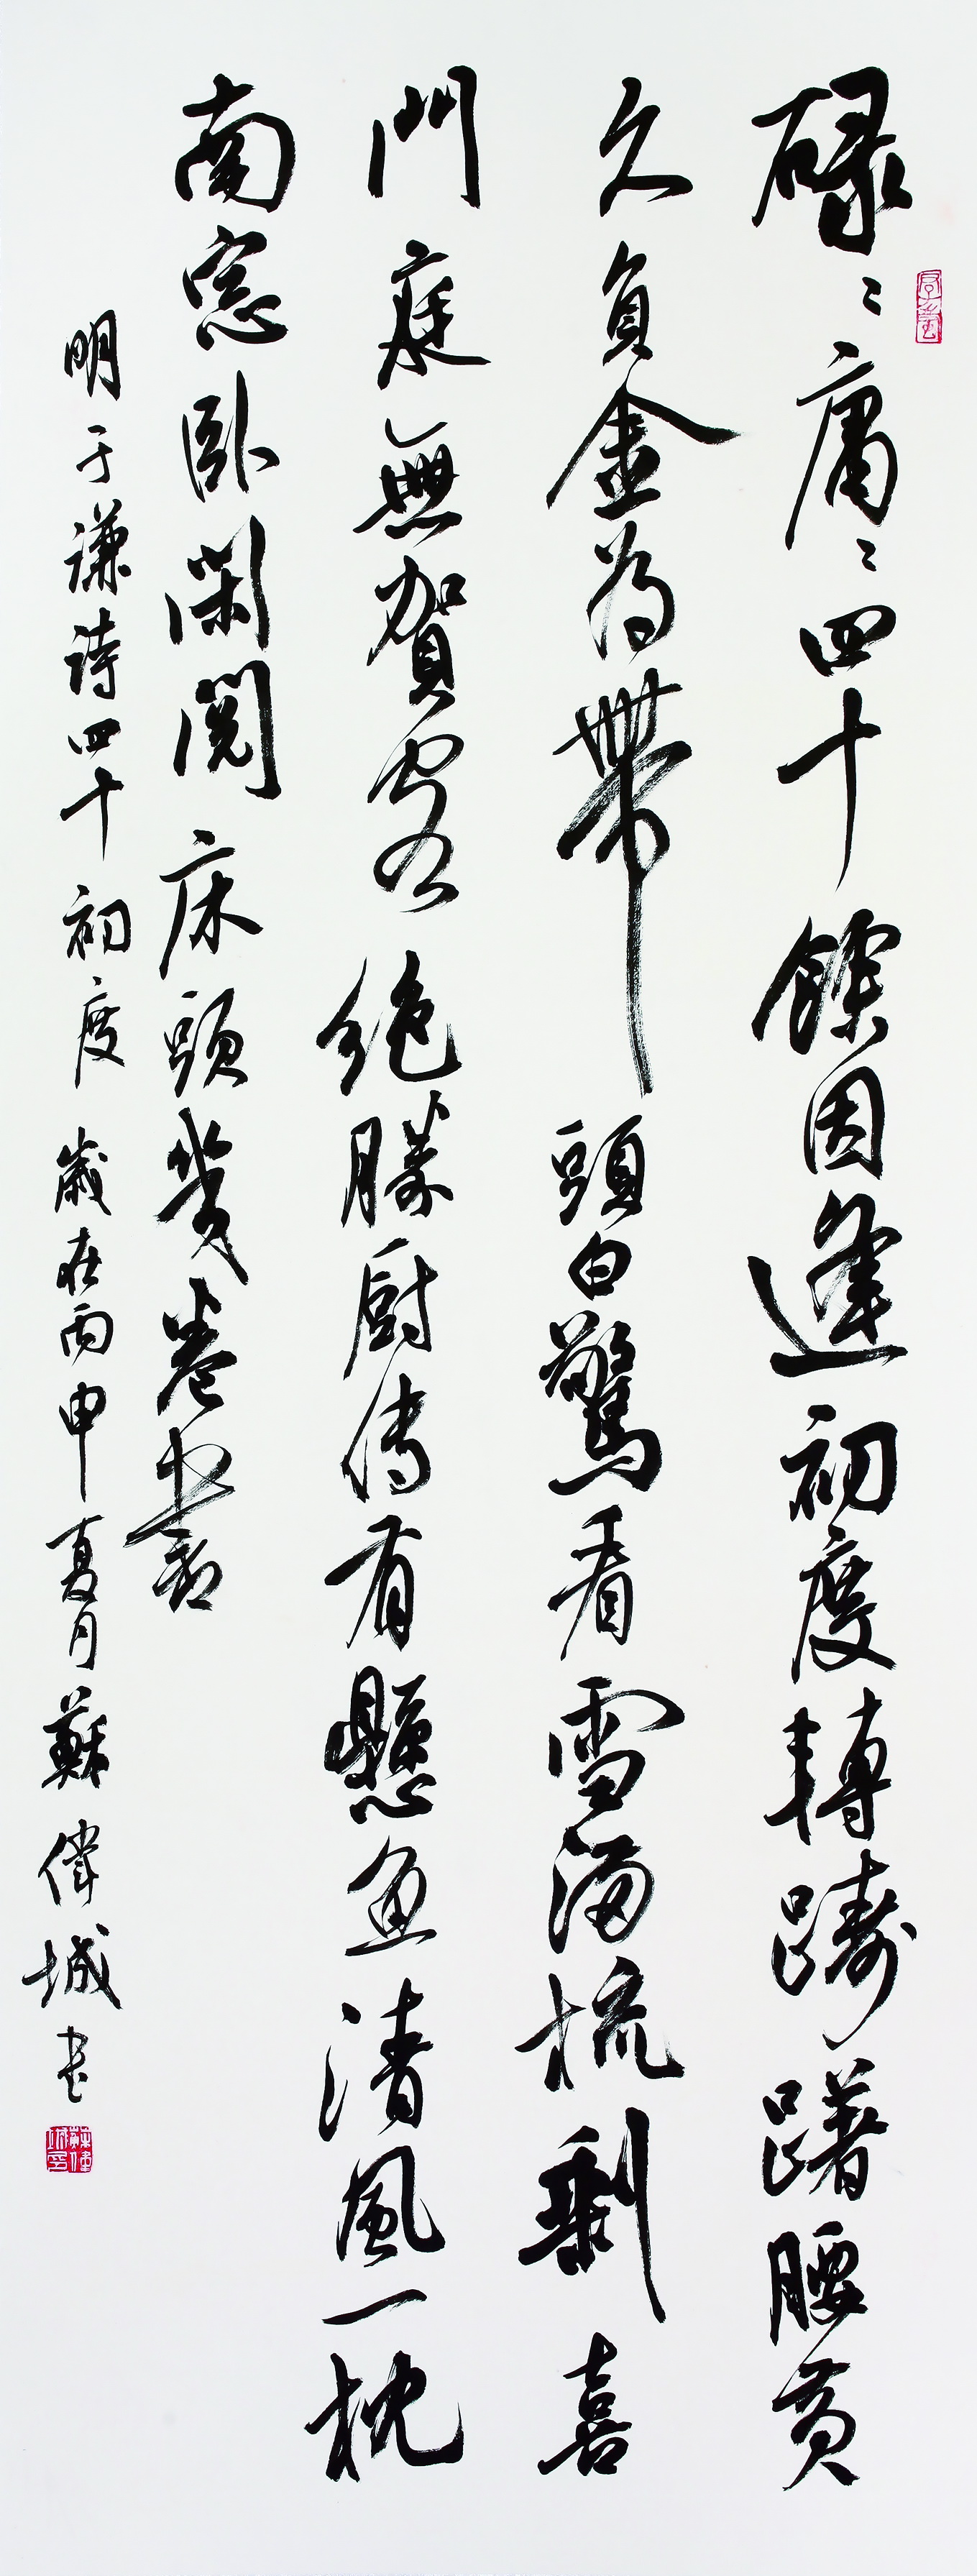 碌〻庸〻四十餘因逢初度轉躊躇腰黄
久負金為帶頭白驚看雪滿梳剩喜
門庭無賀客絶勝厨傳有懸魚清風一枕
南窓卧閑閱床頭幾卷書
明于謙詩四十初度歲在丙申夏月蘇偉城書